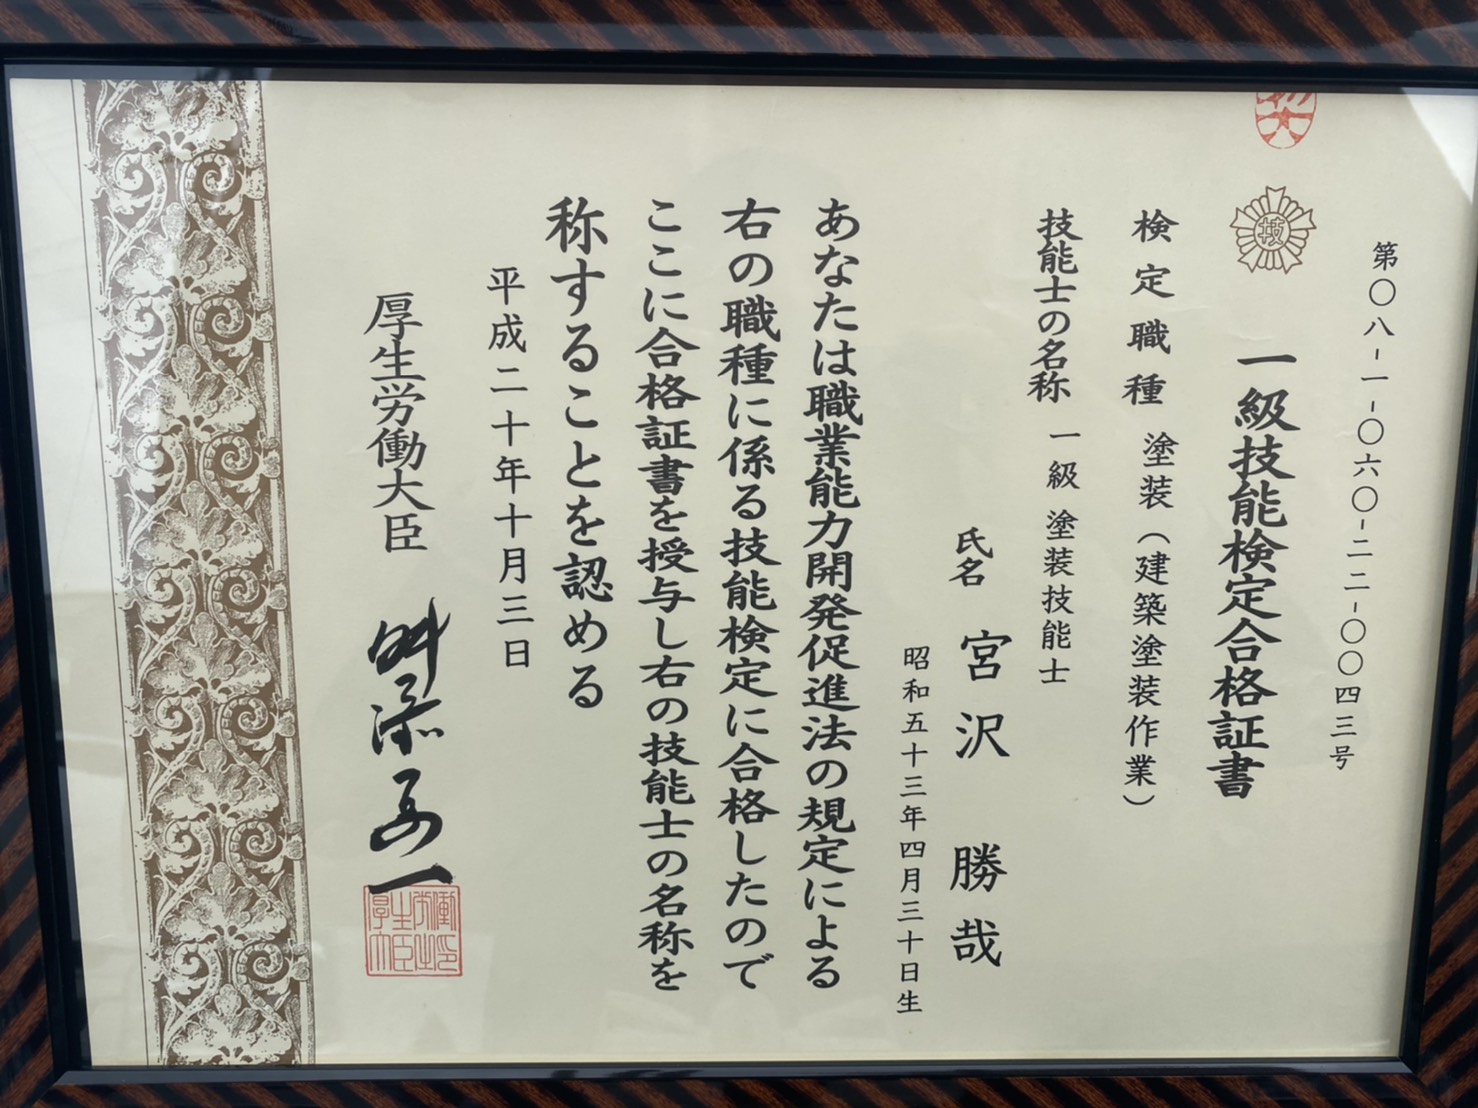 第〇八-一-〇六〇-二二-〇〇四三号
技
一級技能検定合格証書
検定職種 塗装(建築塗装作業)
技能士の名称 一級塗装技能士
氏名 宮沢 勝哉
昭和五十三年四月三十日生
あなたは職業能力開発促進法の規定による
右の職種に係る技能検定に合格したので
ここに合格証書を授与し右の技能士の名称を
称することを認める
平成二十年十月三日
厚生労働大臣 舛添要一
厚生労働大臣之印